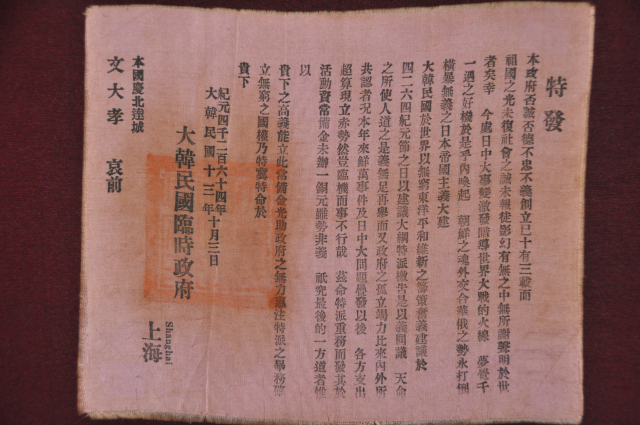 特發
本政府否誠否德不忠不義創立已十有三載而
祖國之光未復社會之誠未報徒影幻有無之中無所謝聲明於世
者矣幸 今處日中大事變激發世界大戰的火線 夢覺千
一遇之好機於是乎內喚起 朝鮮之魂外交合華俄之勢永打倒
橫暴無義之日本帝國主義大建
大韓民國於世界以無窮東洋平和維新之籌策奮義建議於
四二六四紀元節之日以建議大綱特派檄告是以義同議 天命
之所使人道之是義無足再舉而又政府之孤立竭力比來內外所
共認者況本年來鮮萬事件及日中大問題暴發以後 各方支出
超算現立赤勢然豈臨機而事不行哉 茲命特派重務而發其於
活動資常備金未辦一銅元雖勢非義 祇究最後的一方道者惟
以
貴下之高義能立此常備金光助政府之無力專注特派之畢務確
立無窮之國權乃特寫特命於
貴下
紀元四千二百六十四年
大韓民國十三年十月三日
大韓民國臨時政府
上海
Shanghai
本國慶北達城
文大孝 哀前